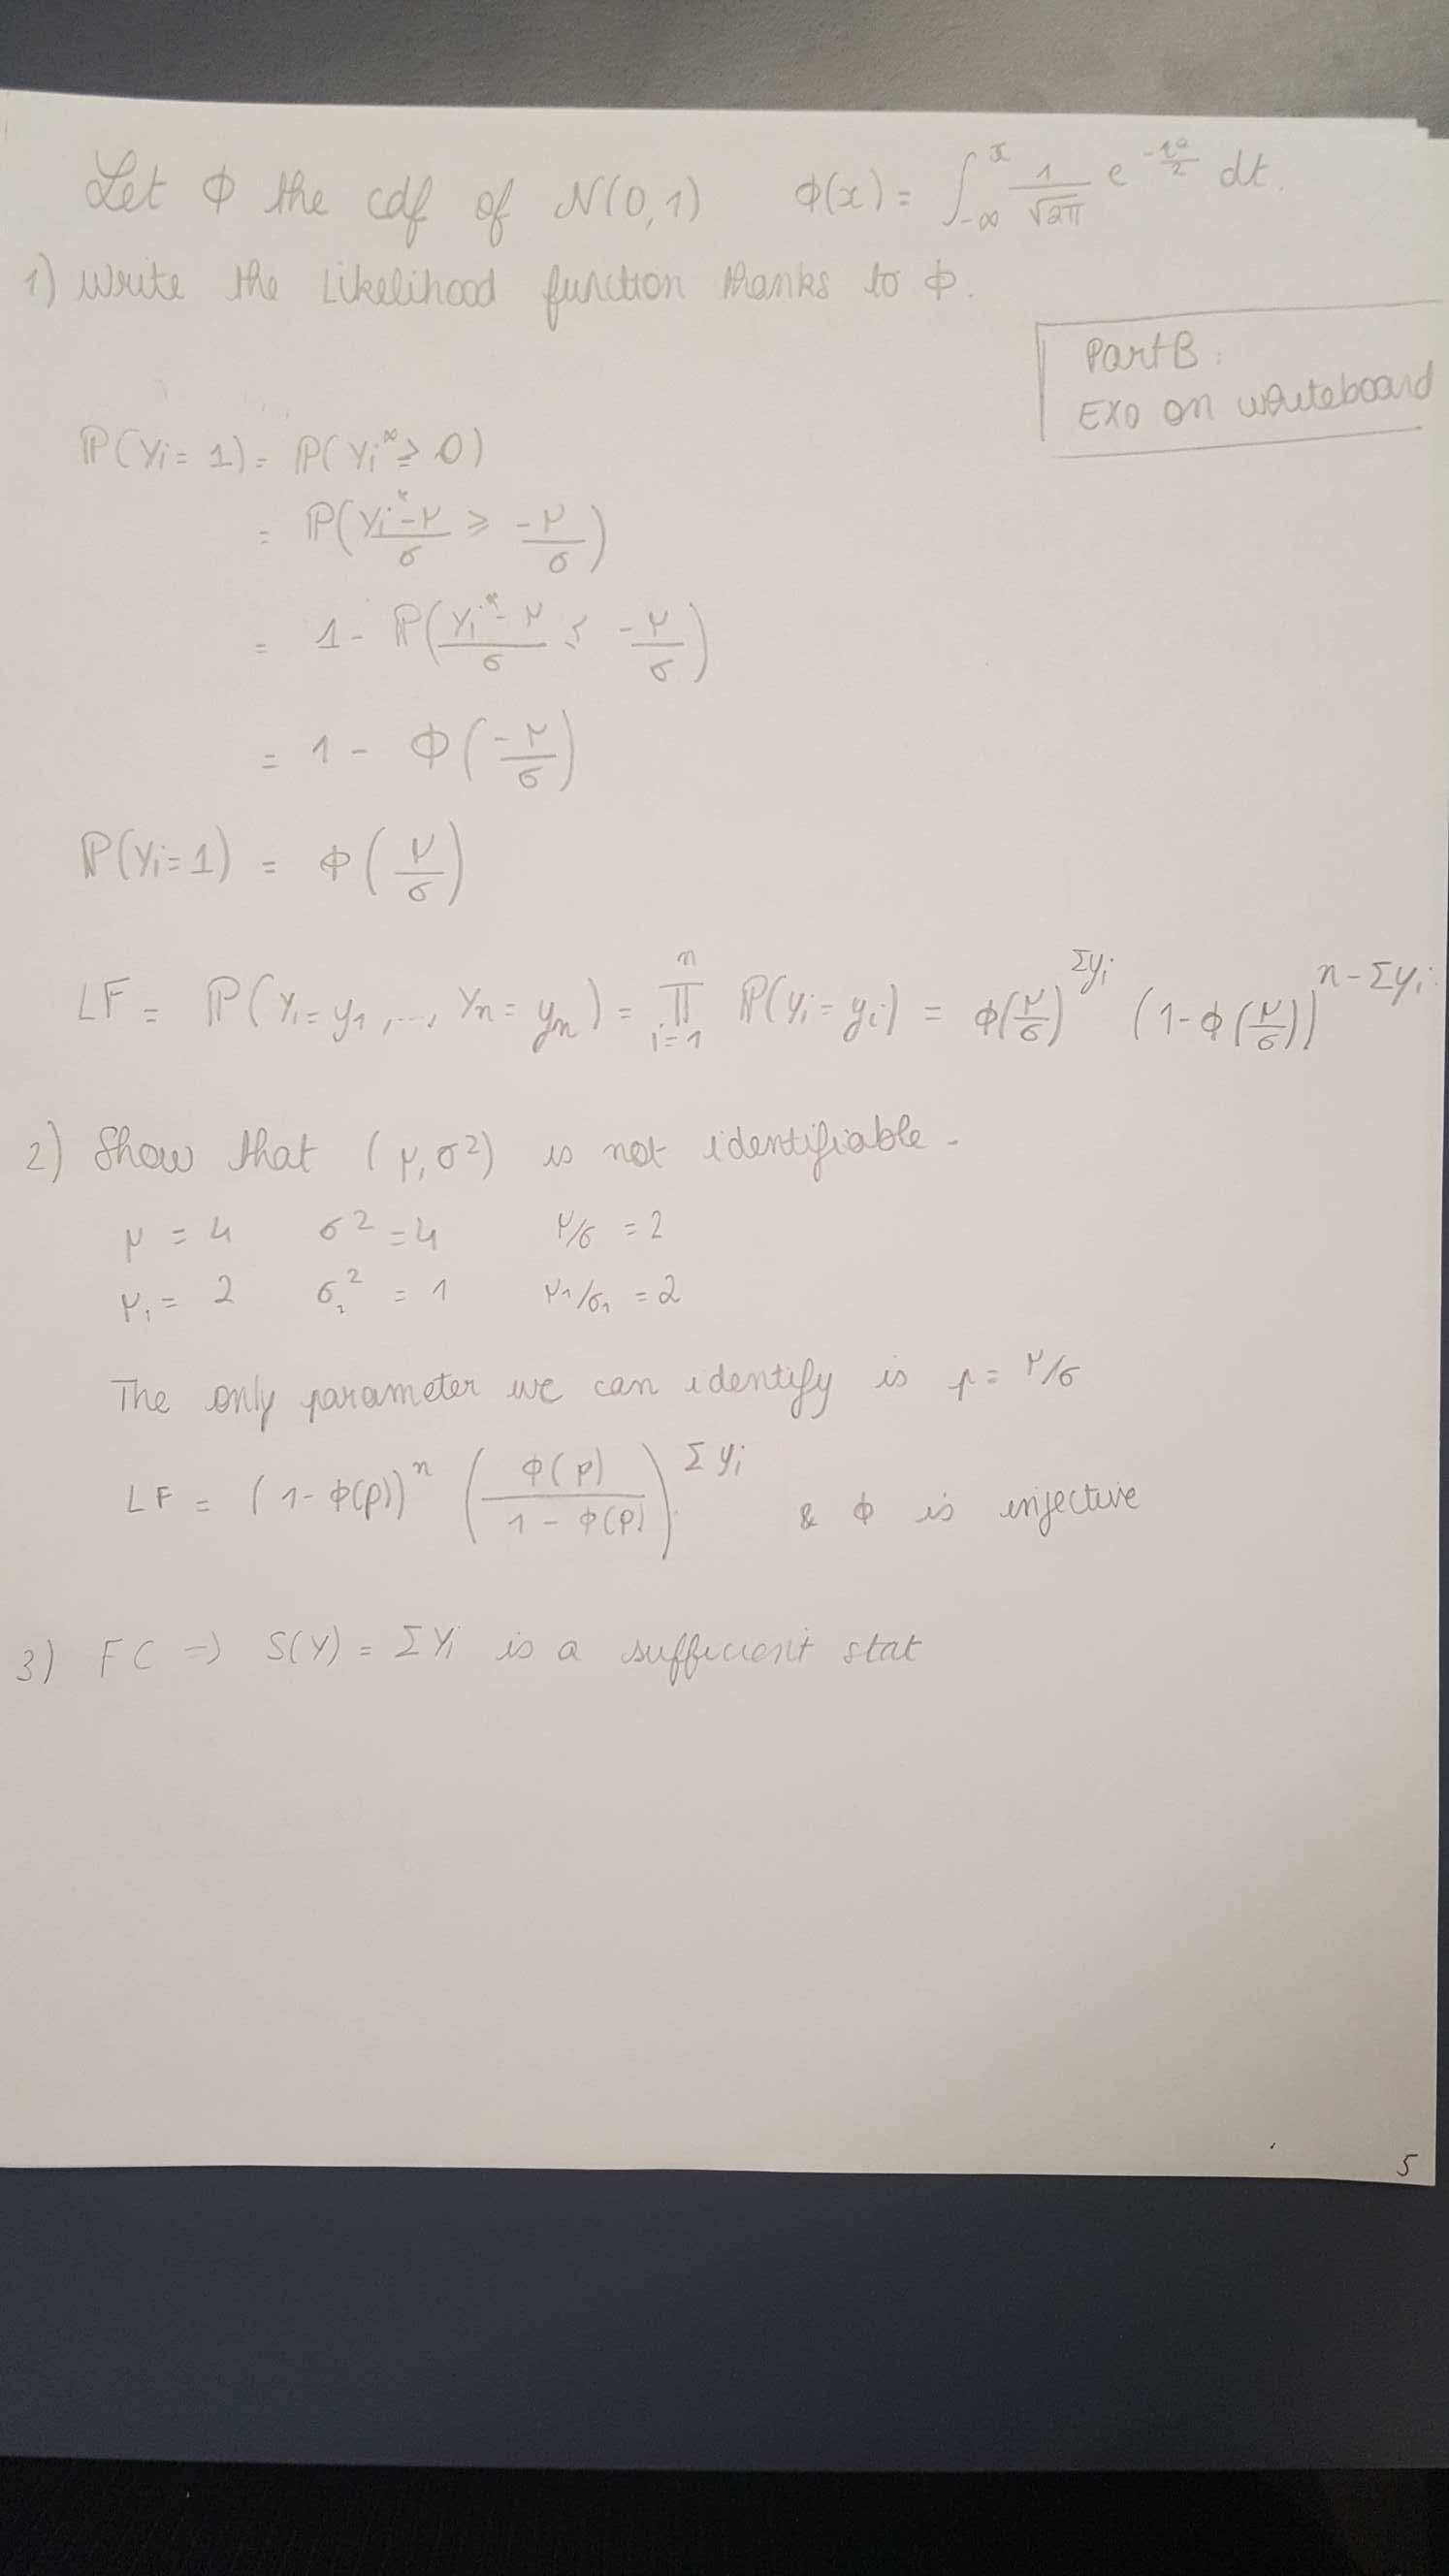 Let Φ the cdf of N(0,1) Φ(x) = ∫_{-∞}^{x} 1/√(2π) e^{-t²/2} dt.
1) Write the Likelihood function thanks to Φ.
Part B :
EXO on whiteboard
ℙ(Yi = 1) = ℙ(Yi* ≥ 0)
= ℙ((Yi* - μ)/σ ≥ -μ/σ)
= 1 - ℙ((Yi* - μ)/σ ≤ -μ/σ)
= 1 - Φ(-μ/σ)
ℙ(Yi = 1) = Φ(μ/σ)
LF = ℙ(Y1 = y1, ..., Yn = yn) = ∏_{i=1}^{n} ℙ(Yi = yi) = Φ(μ/σ)^{Σyi} (1 - Φ(μ/σ))^{n - Σyi}
2) Show that (μ, σ²) is not identifiable.
μ = 4 σ² = 4 μ/σ = 2
μ1 = 2 σ1² = 1 μ1/σ1 = 2
The only parameter we can identify is p = μ/σ
LF = (1 - Φ(p))^n (Φ(p)/(1 - Φ(p)))^{Σyi} & Φ is injective
3) FC ⇒ S(Y) = ΣYi is a sufficient stat
5